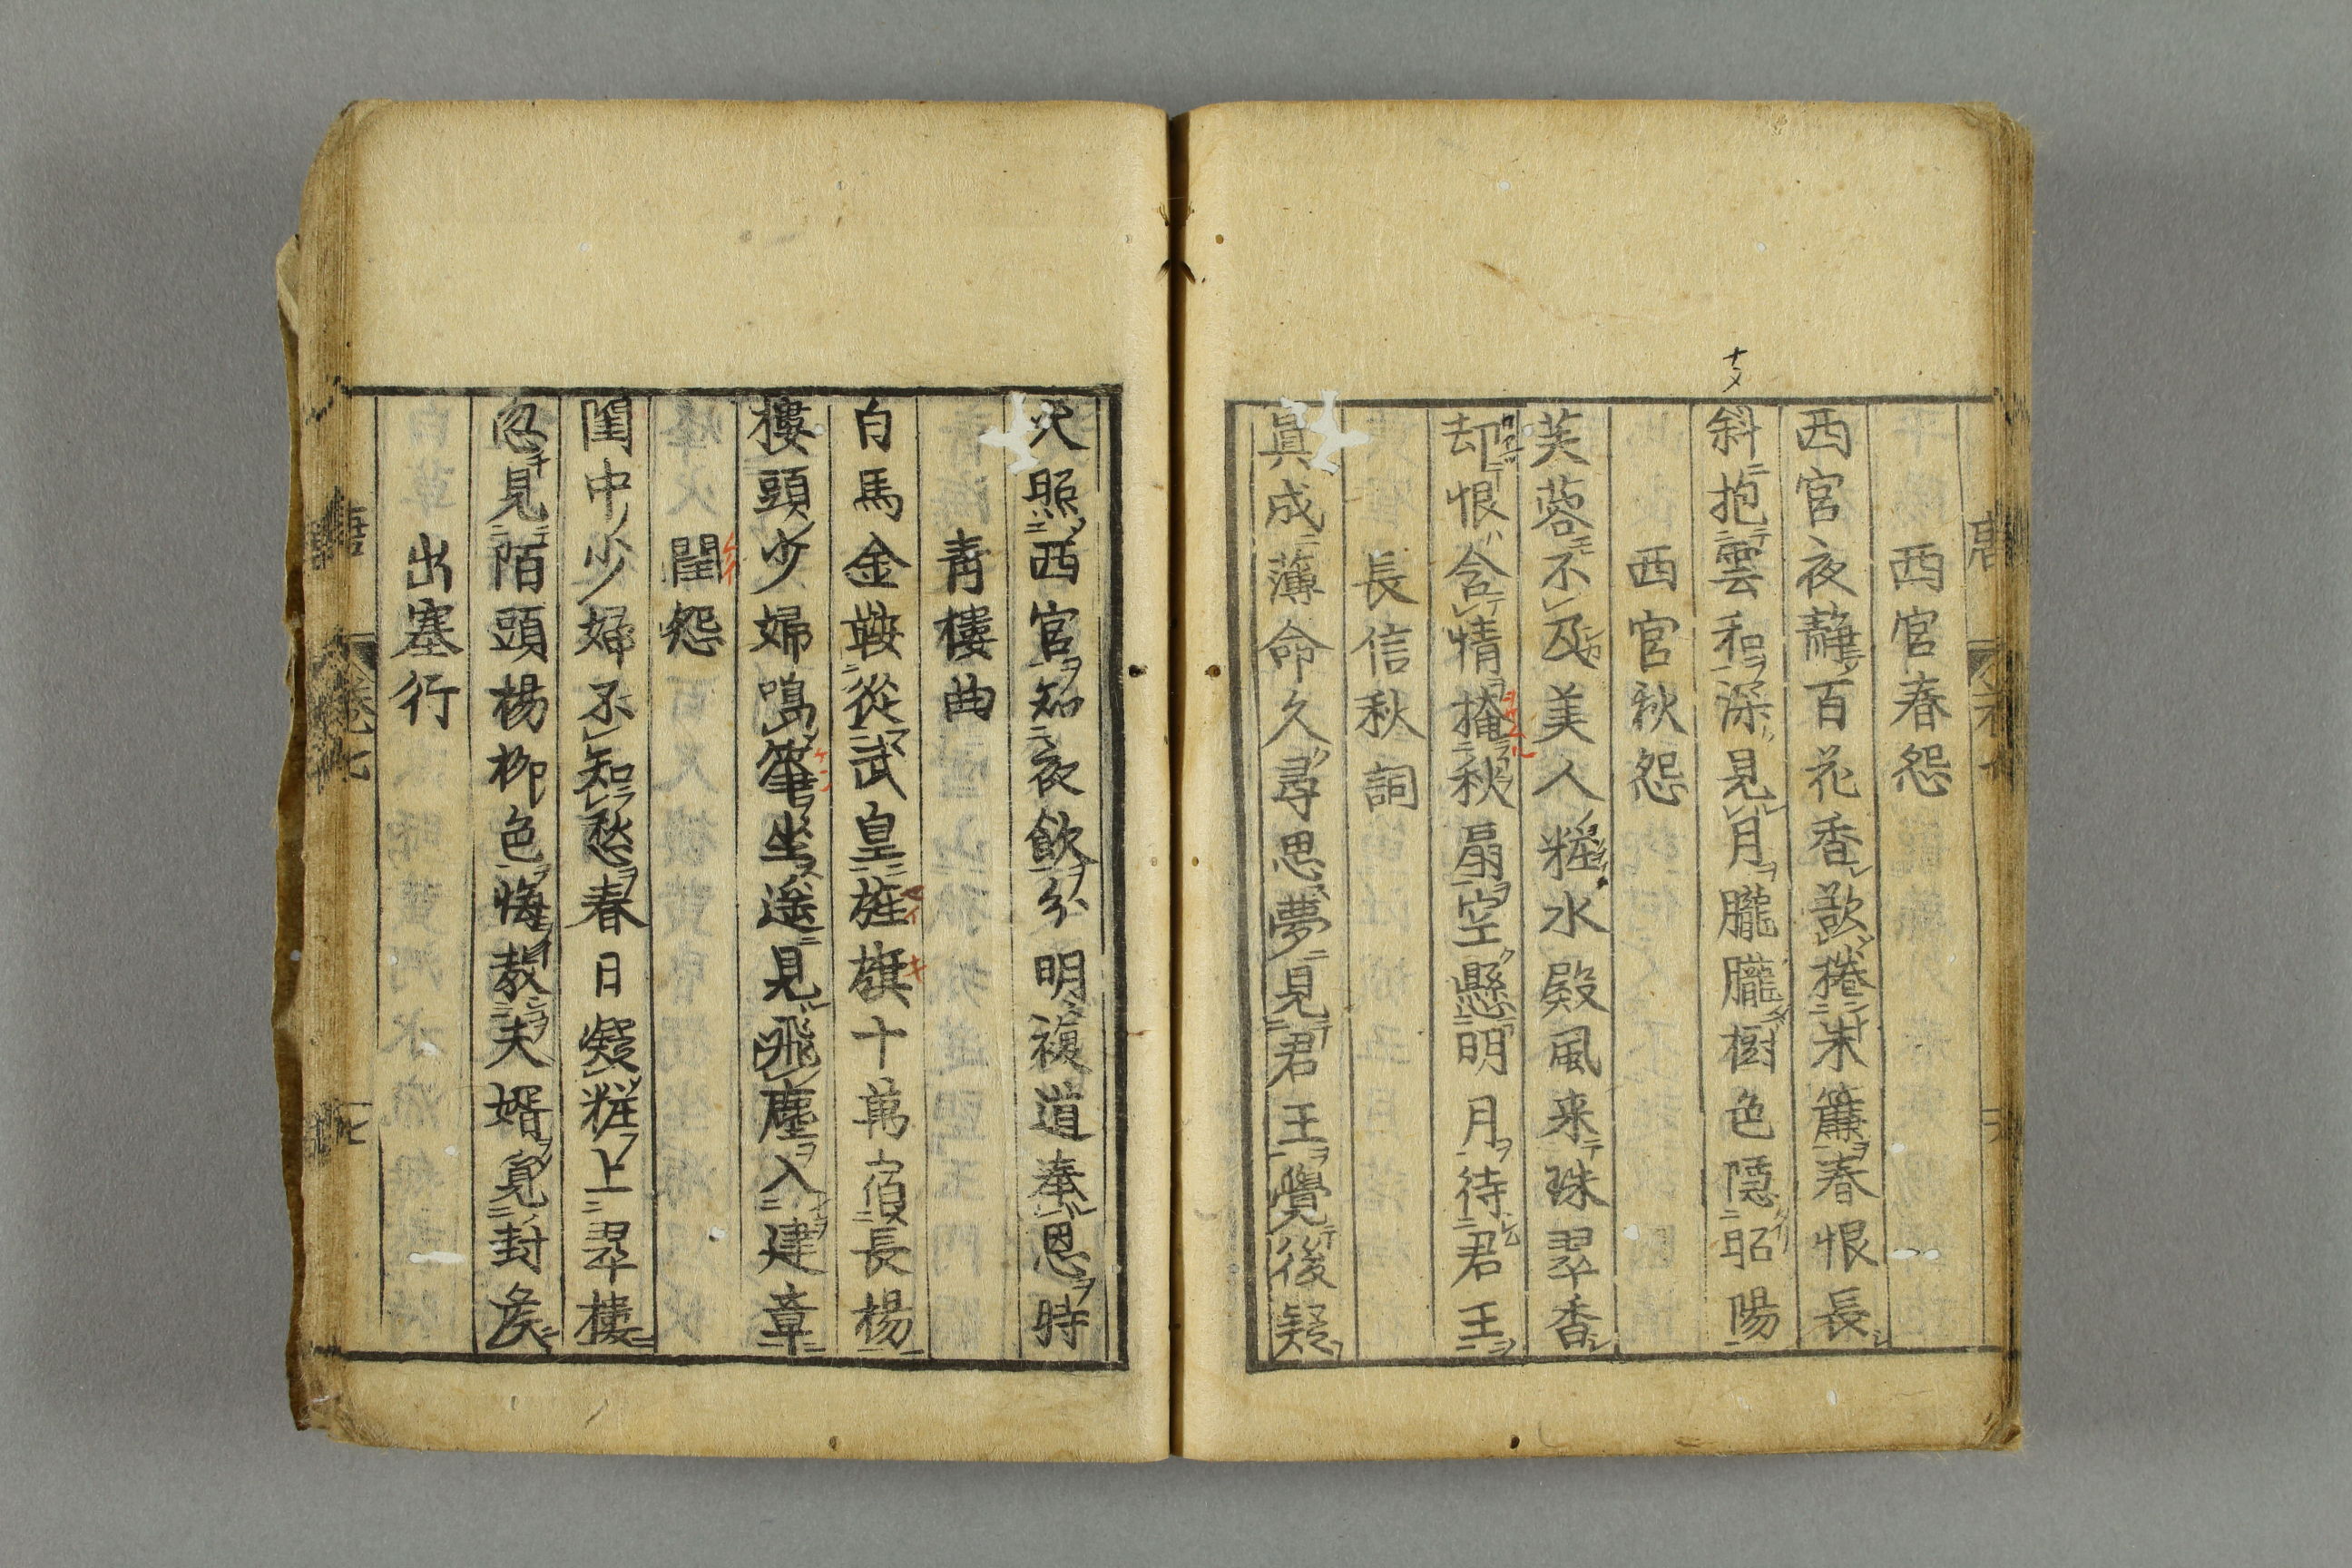 西宮春怨
西宮夜靜百花香欲捲朱簾春恨長
斜抱雲和深見月朧朧樹色隱昭陽
西宮秋怨
芙蓉不及美人粧水殿風来珠翠香
却恨含情掩秋扇空懸明月待君王
長信秋詞
眞成薄命久尋思夢見君王覺後疑
火照西宮知夜飲分明複道奉恩時
青樓曲
白馬金鞍從武皇旌旗十萬宿長楊
樓頭少婦鳴箏坐遥見飛塵入建章
閨怨
閨中少婦不知愁春日凝粧上翠樓
忽見陌頭楊柳色悔教夫婿覓封侯
出塞行
唐 卷七